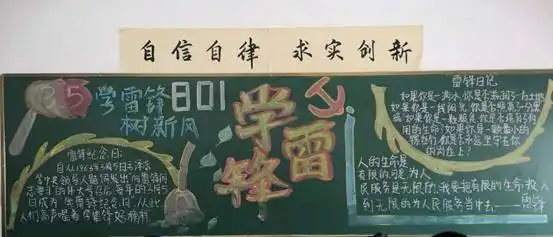 自信自律 求实创新
3.5 学雷锋
树新风
801
学雷锋
雷锋纪念日:
自从1963年3月5日
学习雷锋
人们高声唱着学雷锋好榜样
雷锋日记
如果你是一滴水,你是否滋润了一寸土地
如果你是一线阳光,你是否照亮了一分黑
暗 如果你是一颗粮食,你是否哺育了有
用的生命 如果你是一颗最小的
螺丝钉 你是否永远坚守在你
的岗位上?
人的生命是
有限的,可是,为人
民服务是无限的,我要把有限的生命投入
到无限的为人民服务当中去。——雷锋